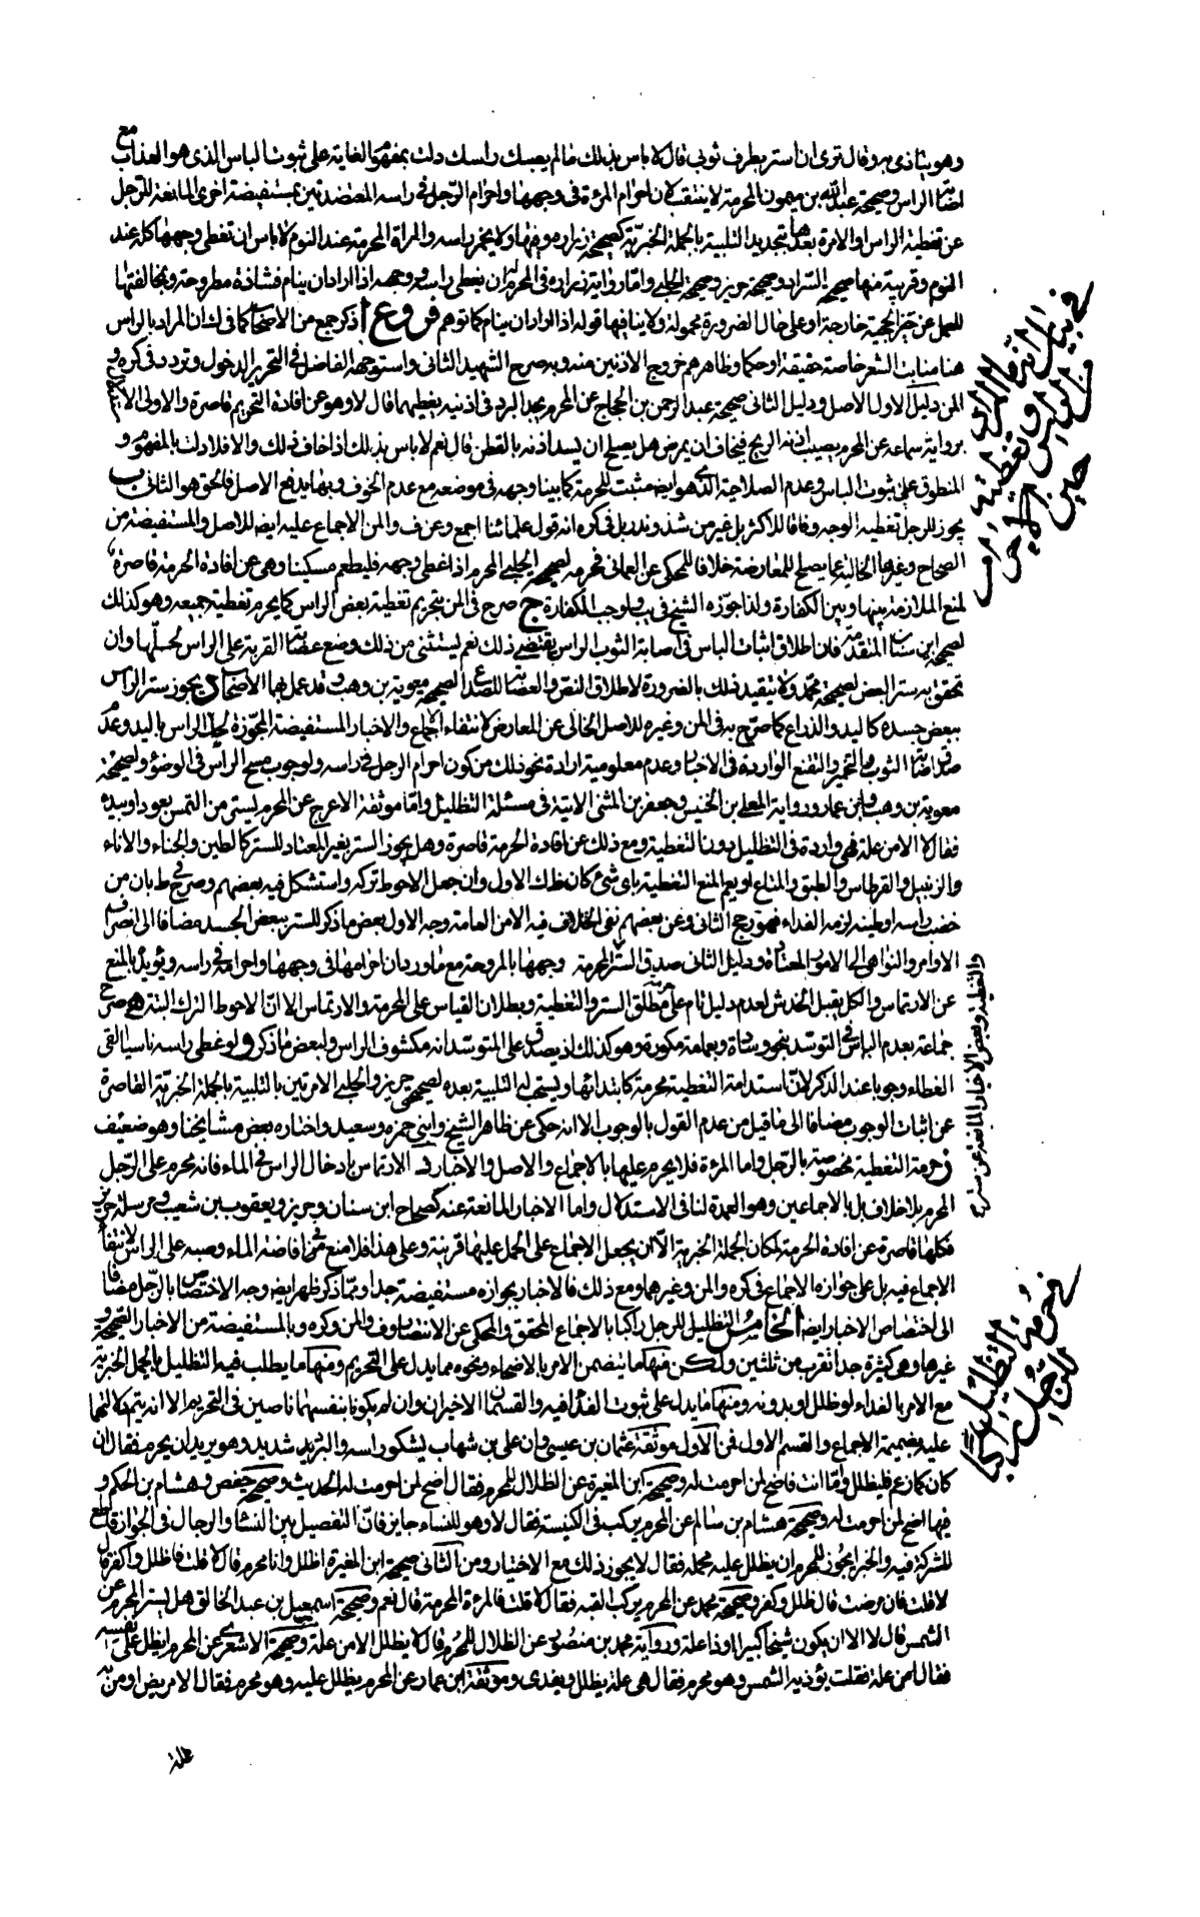 وهو يتاذى به وقال ترى ان استر بطرف ثوبى قال لا باس بذلك ما لم يصبك راسك دلت بمفهوم الغاية على ثبوت الباس الذى هو العذاب مع
اصابة الراس وصحيحة عبد الله بن ميمون المحرمة لا ينتقب لان احرام المرءة فى وجهها واحرام الرجل فى راسه المعتضدتين بمستفيضة اخرى المانعة للرجل
عن تغطية الراس او الامرة بعدها بتجديد التلبية بالجملة الخبرية كصحيحة زرارة وفيها ولا يخمر راسه والمراة المحرمة عند النوم لا باس ان تغطى وجهها كله عند
النوم وقريبة منها صحيحة السراد وصحيحة حريز وصحيحة الحلبى واما رواية زرارة فى المحرم له ان يغطى راسه ووجهه اذا اراد ان ينام فشاذة مطروحة وبمخالفتها
للعمل عن حيز الحجية خارجة او على حال الضرورة محمولة ولا ينافيها قوله اذا اراد ان ينام كما توهم فروع ا ذكر جمع من الاصحاب كما فى ك ان المراد بالراس
هنا منابت الشعر خاصة حقيقة او حكما وظاهرهم خروج الاذنين منه وبه صرح الشهيد الثانى واستوجه الفاضل فى التحرير الدخول وتردد فى كره و
المن دليل الاول الاصل ودليل الثانى صحيحة عبد الرحمن بن الحجاج عن المحرم يجد البرد فى اذنيه يغطيهما قال لا وهو عن افادة التحريم قاصرة والاولى الا
برواية سماعه عن المحرم يصيب اذنه الريح فيخاف ان يمرض هل يصلح ان يسد اذنه بالقطن قال نعم لا باس بذلك اذا خاف ذلك والا فلا دلت بالمفهوم و
المنطوق على ثبوت الباس وعدم الصلاحية الذى هو ايضا مثبت للحرمة كما بينا وجهه فى موضعه مع عدم الخوف وبها يدفع الاصل فالحق هو الثانى ب
يجوز للرجل تغطية الوجه وفاقا للاكثر بل غير من شذ وندر بل فى كره انه قول علمائنا اجمع وعن ف والمن الاجماع عليه ايضا للاصل والمستفيضة من
الصحاح وغيرها الخالية عما يصلح للمعارضة خلافا للمحكى عن العمانى فحرمه لصحيحة الحلبى المحرم اذا غطى وجهه فليطعم مسكينا وهى عن افادة الحرمة قاصرة
لمنع الملازمة بينها وبين الكفارة ولذا جوزه الشيخ فى يب واوجب الكفارة ج صرح فى المن بتحريم تغطية بعض الراس كما يحرم تغطية جميعه وهو كذلك
لصحيحة ابن سنان المتقدمة فان اطلاق اثبات الباس فى اصابة الثوب الراس يقتضى ذلك نعم يستثنى من ذلك وضع عصابة القربة على الراس لحملها وان
تحقق به ستر البعض لصحيحة محمد ولا يتقيد ذلك بالضرورة لاطلاق النص والعصابة للصداع لصحيحة معوية بن وهب وقد عمل بها الاصحاب د يجوز ستر الراس
ببعض جسده كاليد والذراع كما صرح به فى المن وغيره للاصل الخالى عن المعارض لانتفاء الاجماع والاخبار المستفيضة المجوزة لحك الراس باليد وعدم
صدق اصابة الثوب والتخمير والتقنع الواردة فى الاخبار وعدم معلومية ارادة نحو ذلك من كون احرام الرجل فى راسه ولوجوب مسح الراس فى الوضوء ولصحيحة
معوية بن وهب وابن عمار ورواية المعلى بن الخنيس وجعفر بن المثنى الاتية فى مسئلة التظليل واما موثقة الاعرج عن المحرم يستتر من الشمس بعود او بيده
فقال لا الا من علة فهى واردة فى التظليل دون التغطية ومع ذلك عن افادة الحرمة قاصرة وهل يجوز الستر بغير المعتاد للستر كالطين والحناء والاناء
والزنبيل والقرطاس والطبق والمتاع او يعم المنع التغطية باى شئ كان ظ ك الاول وان جعل الاحوط تركه واستشكل فيه بعضهم وصرح فى ط بان من
خضب راسه او طينه لزمه الفداء فهو رجح الثانى وعن بعضهم نفى الخلاف فيه الا من العامة وجه الاول بعض ما ذكر للستر ببعض الجسد مضافا الى انصراف
الاوامر والنواهى الى الامور المعتادة ودليل الثانى صدق الستر المحرمة وجهها بالمروحة مع ما ورد ان احرامها فى وجهها واحرامه فى راسه ويؤيده بالمنع
عن الارتماس والكل يقبل الخدش لعدم دليل تام على حرمة مطلق الستر والتغطية وبطلان القياس على المحرمة والارتماس الا ان الاحوط الترك البتة ه صرح
جماعة بعدم الباس فى التوسد بنحو وسادة وبعمامة مكورة وهو كذلك اذ يصدق على المتوسد انه مكشوف الراس ولبعض ما ذكر و لو غطى راسه ناسيا القى
الغطاء وجوبا عند الذكر لان استدامة التغطية محرمة كابتدائها ويستحب له التلبية بعده لصحيحى حريز والحلبى الامرتين بالتلبية بالجملة الخبرية القاصرة
عن اثبات الوجوب مضافا الى ما قيل من عدم القول بالوجوب الا انه حكى عن ظاهر الشيخ وابنى حمزة وسعيد واختاره بعض مشايخنا وهو ضعيف
ز حرمة التغطية مخصوصة بالرجل واما المرءة فلا يحرم عليها بالاجماع والاصل والاخبار الارتماس بادخال الراس فى الماء فانه محرم على الرجل
المحرم بلا خلاف بل بالاجماعين وهو العمدة لنا فى الاستدلال واما الاخبار المانعة عنه كصحاح ابن سنان وحريز ويعقوب بن شعيب ومرسلة حريز
فكلها قاصرة عن افادة الحرمة لمكان الجملة الخبرية الا ان يجعل الاجماع على الحمل عليها قرينة وعلى هذا فلا منع فى افاضة الماء وصبه على الراس لانتفاء
الاجماع فيه بل على جوازه الاجماع فى كره والمن وغيرهما ومع ذلك فالاخبار بجوازه مستفيضة جدا ومما ذكر ظهر ايضا وجه الاختصاص بالرجل مضافا
الى اختصاص الاخبار ايضا الخامس التظليل للرجل راكبا بالاجماع المحقق والمحكى عن الانتصار وف والمن وكره وبالمستفيضة من الاخبار الصحيحة و
غيرها وهى كثيرة جدا تقرب من ثلثين ولكن فيها ما يتضمن الامر بالاضحاء ونحوه مما يدل على التحريم ومنها ما يطلب فيه التظليل بالجمل الخبرية
مع الامر بالفداء لو ظلل او بدونه ومنها ما يدل على ثبوت الفداء فيه والقسمان الاخيران وان لم يكونا بنفسهما ناصين فى التحريم الا انه يتم دلالتهما
عليه بضميمة الاجماع والقسم الاول فمن الاول موثقة عثمان بن عيسى وان على بن شهاب يشكو راسه والبرد شديد وهو يريد ان يحرم فقال ان
كان كما زعم فليظلل واما انت فاضح لمن احرمت له وصحيحة ابن المغيرة عن الظلال للمحرم فقال اضح لمن احرمت له الحديث وصحيحة حفص وهشام بن الحكم و
فيها اضح لمن احرمت له وصحيحة هشام بن سالم عن المحرم يركب فى الكنيسة فقال لا وهو للنساء جايز فان التفصيل بين النساء والرجال فى الجواز قاطع
للشركة فيه والخبر ايجوز للمحرم ان يظلل عليه محمله فقال لا يجوز ذلك مع الاختيار ومن الثانى صحيحة ابن المغيرة اظلل وانا محرم قال لا قلت فاظلل واكفر قال
لا قلت فان مرضت قال ظلل وكفر وصحيحة محمد عن المحرم يركب القبة فقال لا قلت فالمرءة المحرمة قال نعم وصحيحة اسمعيل بن عبد الخالق هل يستر المحرم عن
الشمس قال لا الا ان يكون شيخا كبيرا او ذا علة ورواية محمد بن منصور عن الظلال للمحرم قال لا يظلل الا من علة وصحيحة الاشعرى عن المحرم ايظلل على نفسه
فقال امن علة فقلت يؤذيه الشمس وهو محرم فقال هى علة يظلل ويفدى وموثقة ابن عمار عن المحرم يظلل عليه وهو محرم فقال الا مريض او من به
علة
والتغطية وبعض الاخبار المانعة عن ستر
فى حرمة التظليل
للرجل راكبا